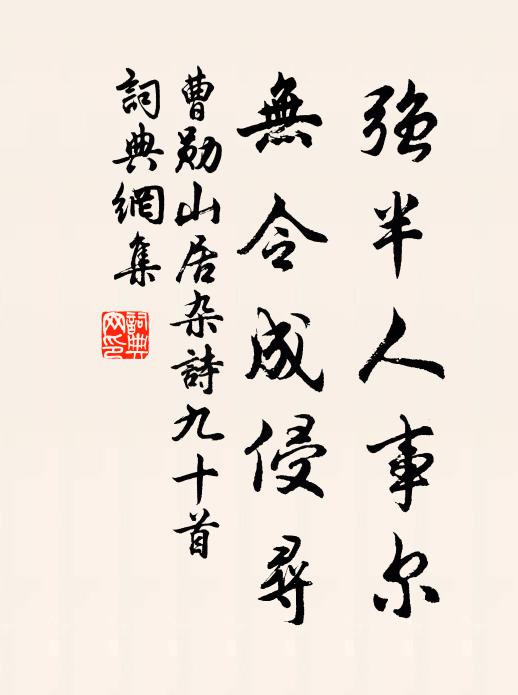 强半人事尔
無令成侵尋
曹勋山居杂詩九十首
詞典網集
詞典
网印